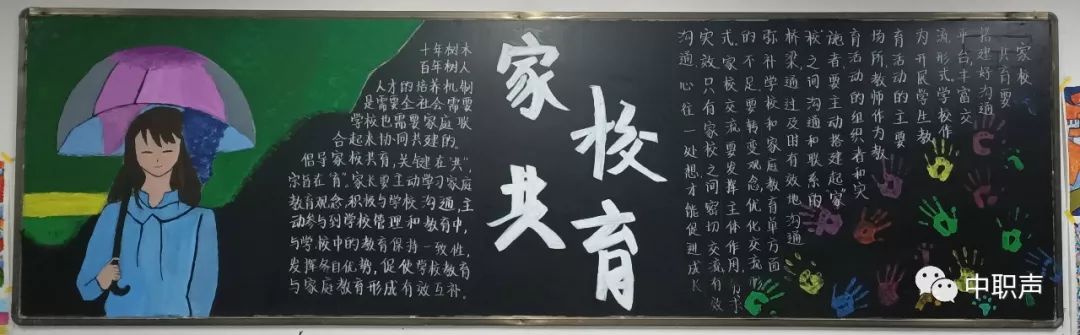 十年树木
百年树人
人才的培养机制
是需要全社会需要
学校也需要家庭联
合起来协同共建的。
倡导家校共育,关键在"共",
宗旨在"育"。家长要主动学习家庭
教育观念,积极与学校沟通,主
动参与到学校管理和教育中,
与学校中的教育保持一致性,
发挥各自优势,促使学校教育
与家庭教育形成有效互补。
家校
共育
家校
共育要
搭建好沟通
平台,丰富交
流形式,学校作
为开展学生教
育活动的主要
场所,教师作为教
育活动的组织者和实
施者,要主动搭建起"家
校"之间沟通和联系的
桥梁,通过及时有效地沟通
弥补学校和家庭教育单方面
的不足,要转变观念,优化交流形
式,家校交流要发挥主体作用,
实效,只有家校之间密切交流,有效
沟通,心往一处想,才能促进成长
中职声